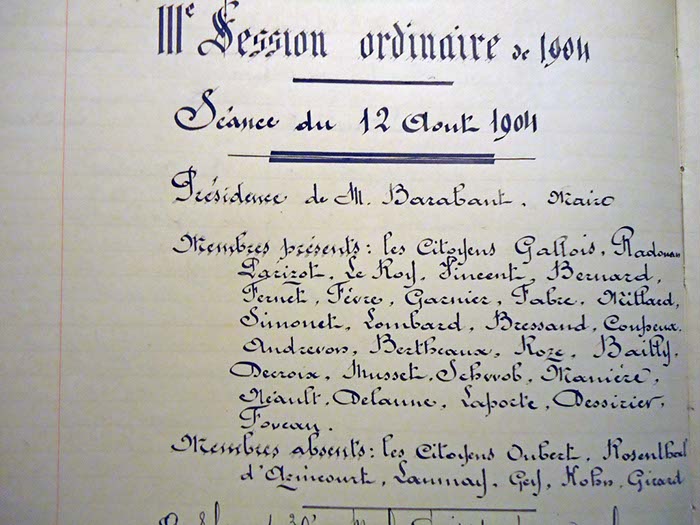 IIIe Session ordinaire de 1904
Séance du 12 Aout 1904
Présidence de M. Barabant, Maire
Membres présents: les Citoyens Gallois, Radouan
Parizot, Le Roy, Vincent, Bernard,
Fernet, Fèvre, Garnier, Fabre, Millard,
Simonet, Lombard, Bressand, Coupeux
Andrevon, Bertheaux, Roze, Bailly,
Decroix, Musset, Schwob, Manière,
Néault, Delanne, Laporte, Dessirier,
Foveau.
Membres absents: les Citoyens Oubert, Rosenthal
d'Azincourt, Launay, Gey, Kohn, Girard